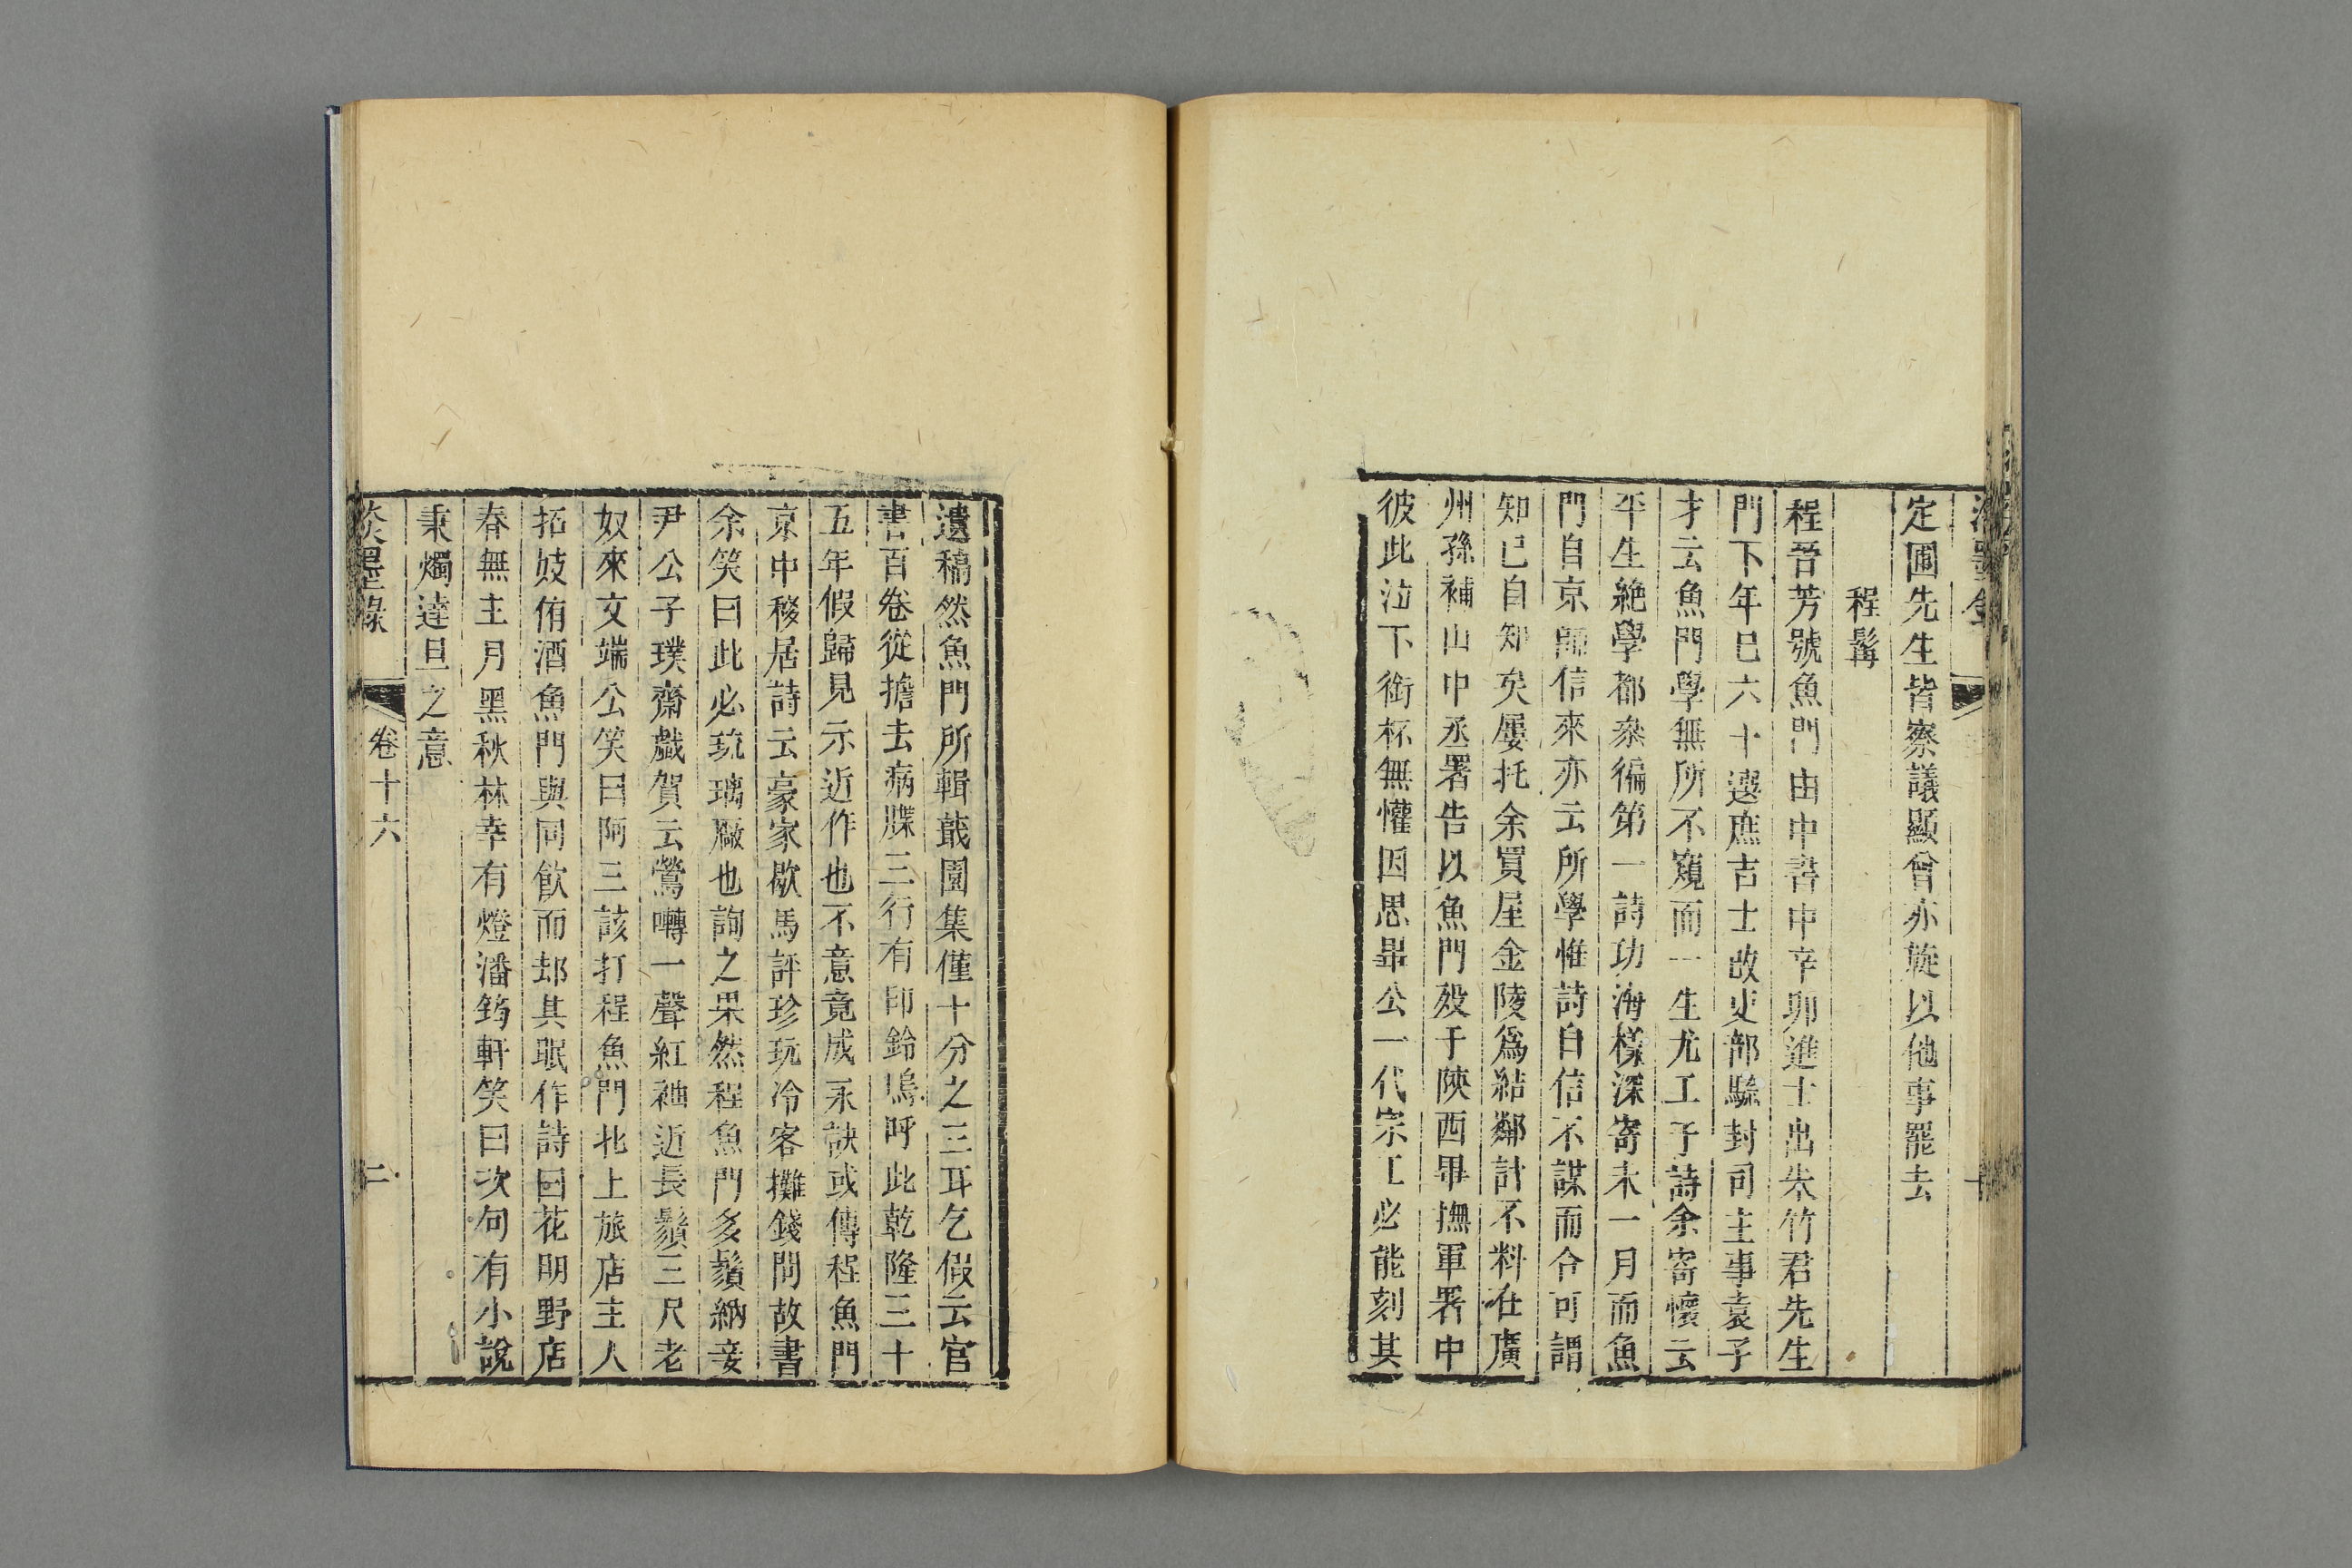 定圃先生皆寮議顯曾亦旋以他事罷去
程髯
程晉芳號魚門由中書中辛卯進士出朱竹君先生
門下年已六十選庶吉士改吏部驗封司主事袁子
才云魚門學無所不窺而一生尤工于詩余寄懷云
平生絶學都叅徧第一詩功海樣深寄未一月而魚
門自京師信來亦云所學惟詩自信不謀而合可謂
知已自知矣屢托余買屋金陵爲結鄰計不料在廣
州孫補山中丞署告以魚門殁于陝西畢撫軍署中
彼此泣下銜杯無懽因思畢公一代宗工必能刻其
遺稿然魚門所輯蕺園集僅十分之三耳乞假云官
書百卷從擔去病牒三行有印鈴嗚呼此乾隆三十
五年假歸見示近作也不意竟成永訣或傳程魚門
京中移居詩云豪家歇馬評珍玩冷客攤錢問故書
余笑曰此必琉璃厰也詢之果然程魚門多鬚納妾
尹公子璞齋戲賀云鶯囀一聲紅袖近長鬚三尺老
奴來文端公笑曰阿三該打程魚門北上旅店主人
招妓侑酒魚門與同飲而却其眠作詩曰花明野店
春無主月黑秋林幸有燈潘筠軒笑曰次句有小說
秉燭達旦之意
淡墨錄
卷十六
二